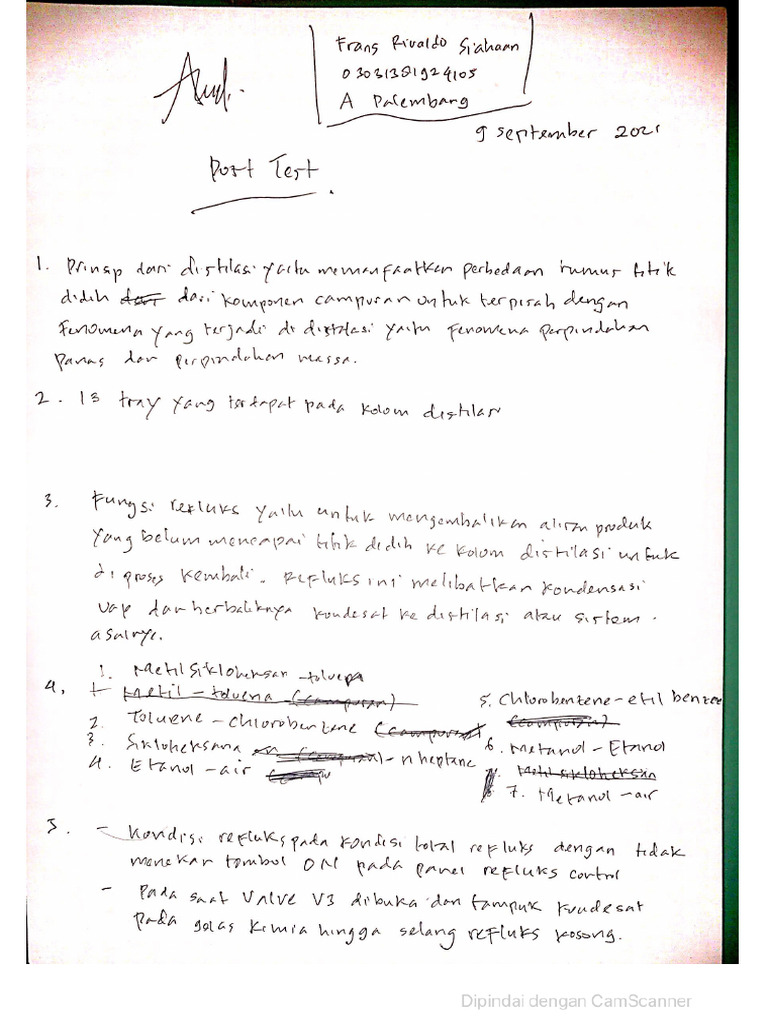 Frans Rivaldo Siahaan
03031381924105
A Palembang
9 September 2021
Post Test
1. Prinsip dari distilasi yaitu memanfaatkan perbedaan titik
didih dari dari komponen campuran untuk terpisah dengan
fenomena yang terjadi di distilasi yaitu fenomena perpindahan
panas dan perpindahan massa.
2. 13 tray yang terdapat pada kolom distilasi
3. Fungsi refluks yaitu untuk mengembalikan aliran produk
yang belum mencapai titik didih ke kolom distilasi untuk
di proses kembali. Refluks ini melibatkan kondensasi
uap dan berbaliknya kondesat ke distilasi atau sistem
asalnya.
4. 1. Metil sikloheksan - toluena
1 Metil - toluena (campuran)
2. Toluene - chlorobenzene (campuran)
3. Sikloheksana (campuran) - n heptane
4. Etanol - air
5. Chlorobenzene - etil benzene
(campuran)
6. Metanol - Etanol
7. Metil sikloheksan
7. Metanol - air
5. - Kondisi refluks pada kondisi total refluks dengan tidak
menekan tombol ON pada panel refluks control
- Pada saat Valve V3 dibuka dan tampuk kondesat
pada gelas kimia hingga selang refluks kosong.
Dipindai dengan CamScanner